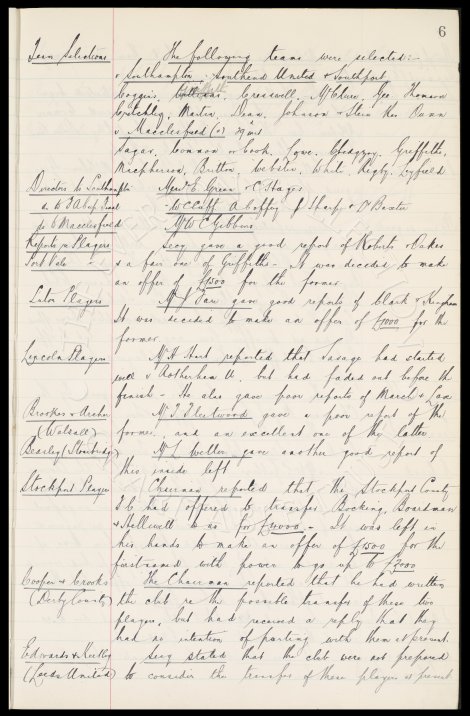 6
Team Selections The following teams were selected:-
v Southampton, Southend United & Southport
Coggins, Cresswell, McClure, Gee Thomson
Critchley, Martin, Dean, Johnson & Stein Res Dunn
v Macclesfield (a)
Sagar, Common or Cook, Lowe, Griffiths,
Macpherson, Britton, Webster, White, Rigby,
Directors to Southampton Messrs E. Green & C. Stages
W C Cuff, A Coffey, J Sharp & D Baxter
do to Macclesfield Mr W C Gibbins
Reports on Players Secy gave a good report of Roberts & Oakes
Port Vale & a fair one of Griffiths - it was decided to make
an offer of £1500 for the former
Luton Players Mr gave good reports of Clark & Kingham
It was decided to make an offer of £1000 for the
former.
Lincoln Players Mr H Hart reported that Savage had started
well v Rotherham U. but had faded out before the
finish - He also gave poor reports of March & Lax
Brookes & Archer Mr T Fleetwood gave a poor report of the
(Walsall) former, and an excellent one of the latter
Bearley (Stourbridge) Mr L Weller gave another good report of
this inside left
Stockport Players Chairman reported that the Stockport County
F.C. had offered to transfer Bocking, Boardman
& Hellewell to us for £4000 - It was left in
his hands to make an offer of £1500 for the
first named with power to go up to £2000
Cooper & Crooks The Chairman reported that he had written
(Derby County) the club re the possible transfer of these two
players, but had received a reply that they
had no intention of parting with them at present
Edwards & Keetley Secy stated that the club were not prepared
(Leeds United) to consider the transfer of these players at present